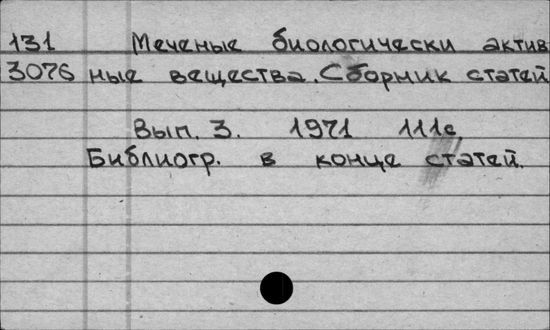 131 Меченые биологически актив
3076 ные вещества. Сборник статей
Вып. 3. 1971 111с.
Библиогр. в конце статей.